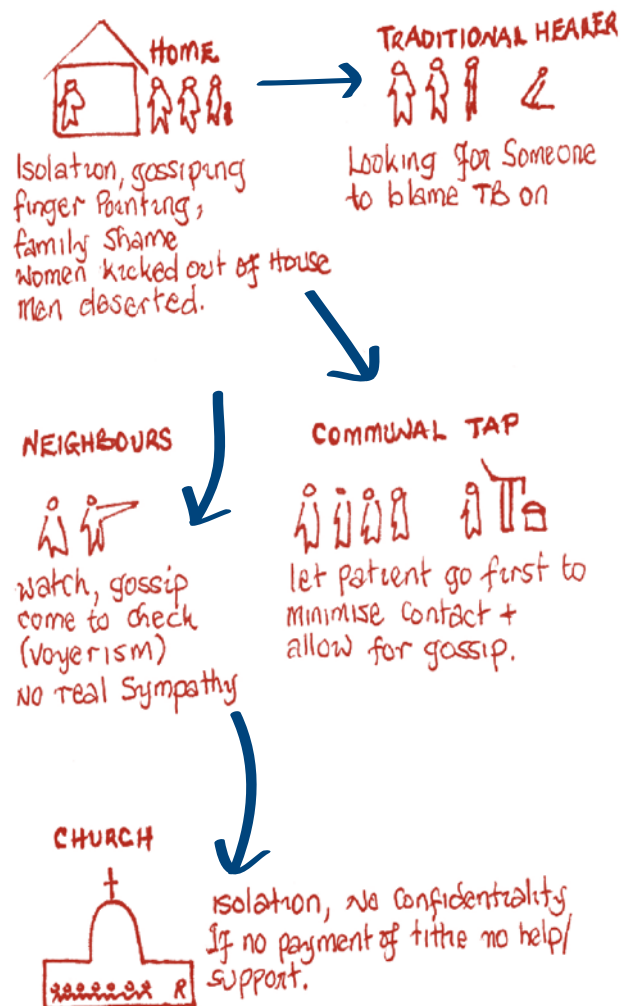 HOME
Isolation, gossiping
finger Pointing,
family shame
women kicked out of House
men deserted.
TRADITIONAL HEALER
Looking for Someone
to blame TB on
NEIGHBOURS
watch, gossip
come to check
(voyerism)
No real Sympathy
COMMUNAL TAP
let patient go first to
minimise contact +
allow for gossip.
CHURCH
R
Isolation, No Confidentiality
If no payment of tithe no help/
support.